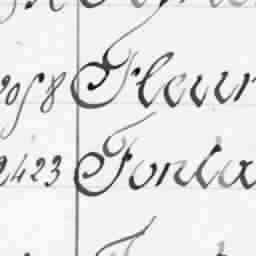 2058 Fleur
2423 Fonta